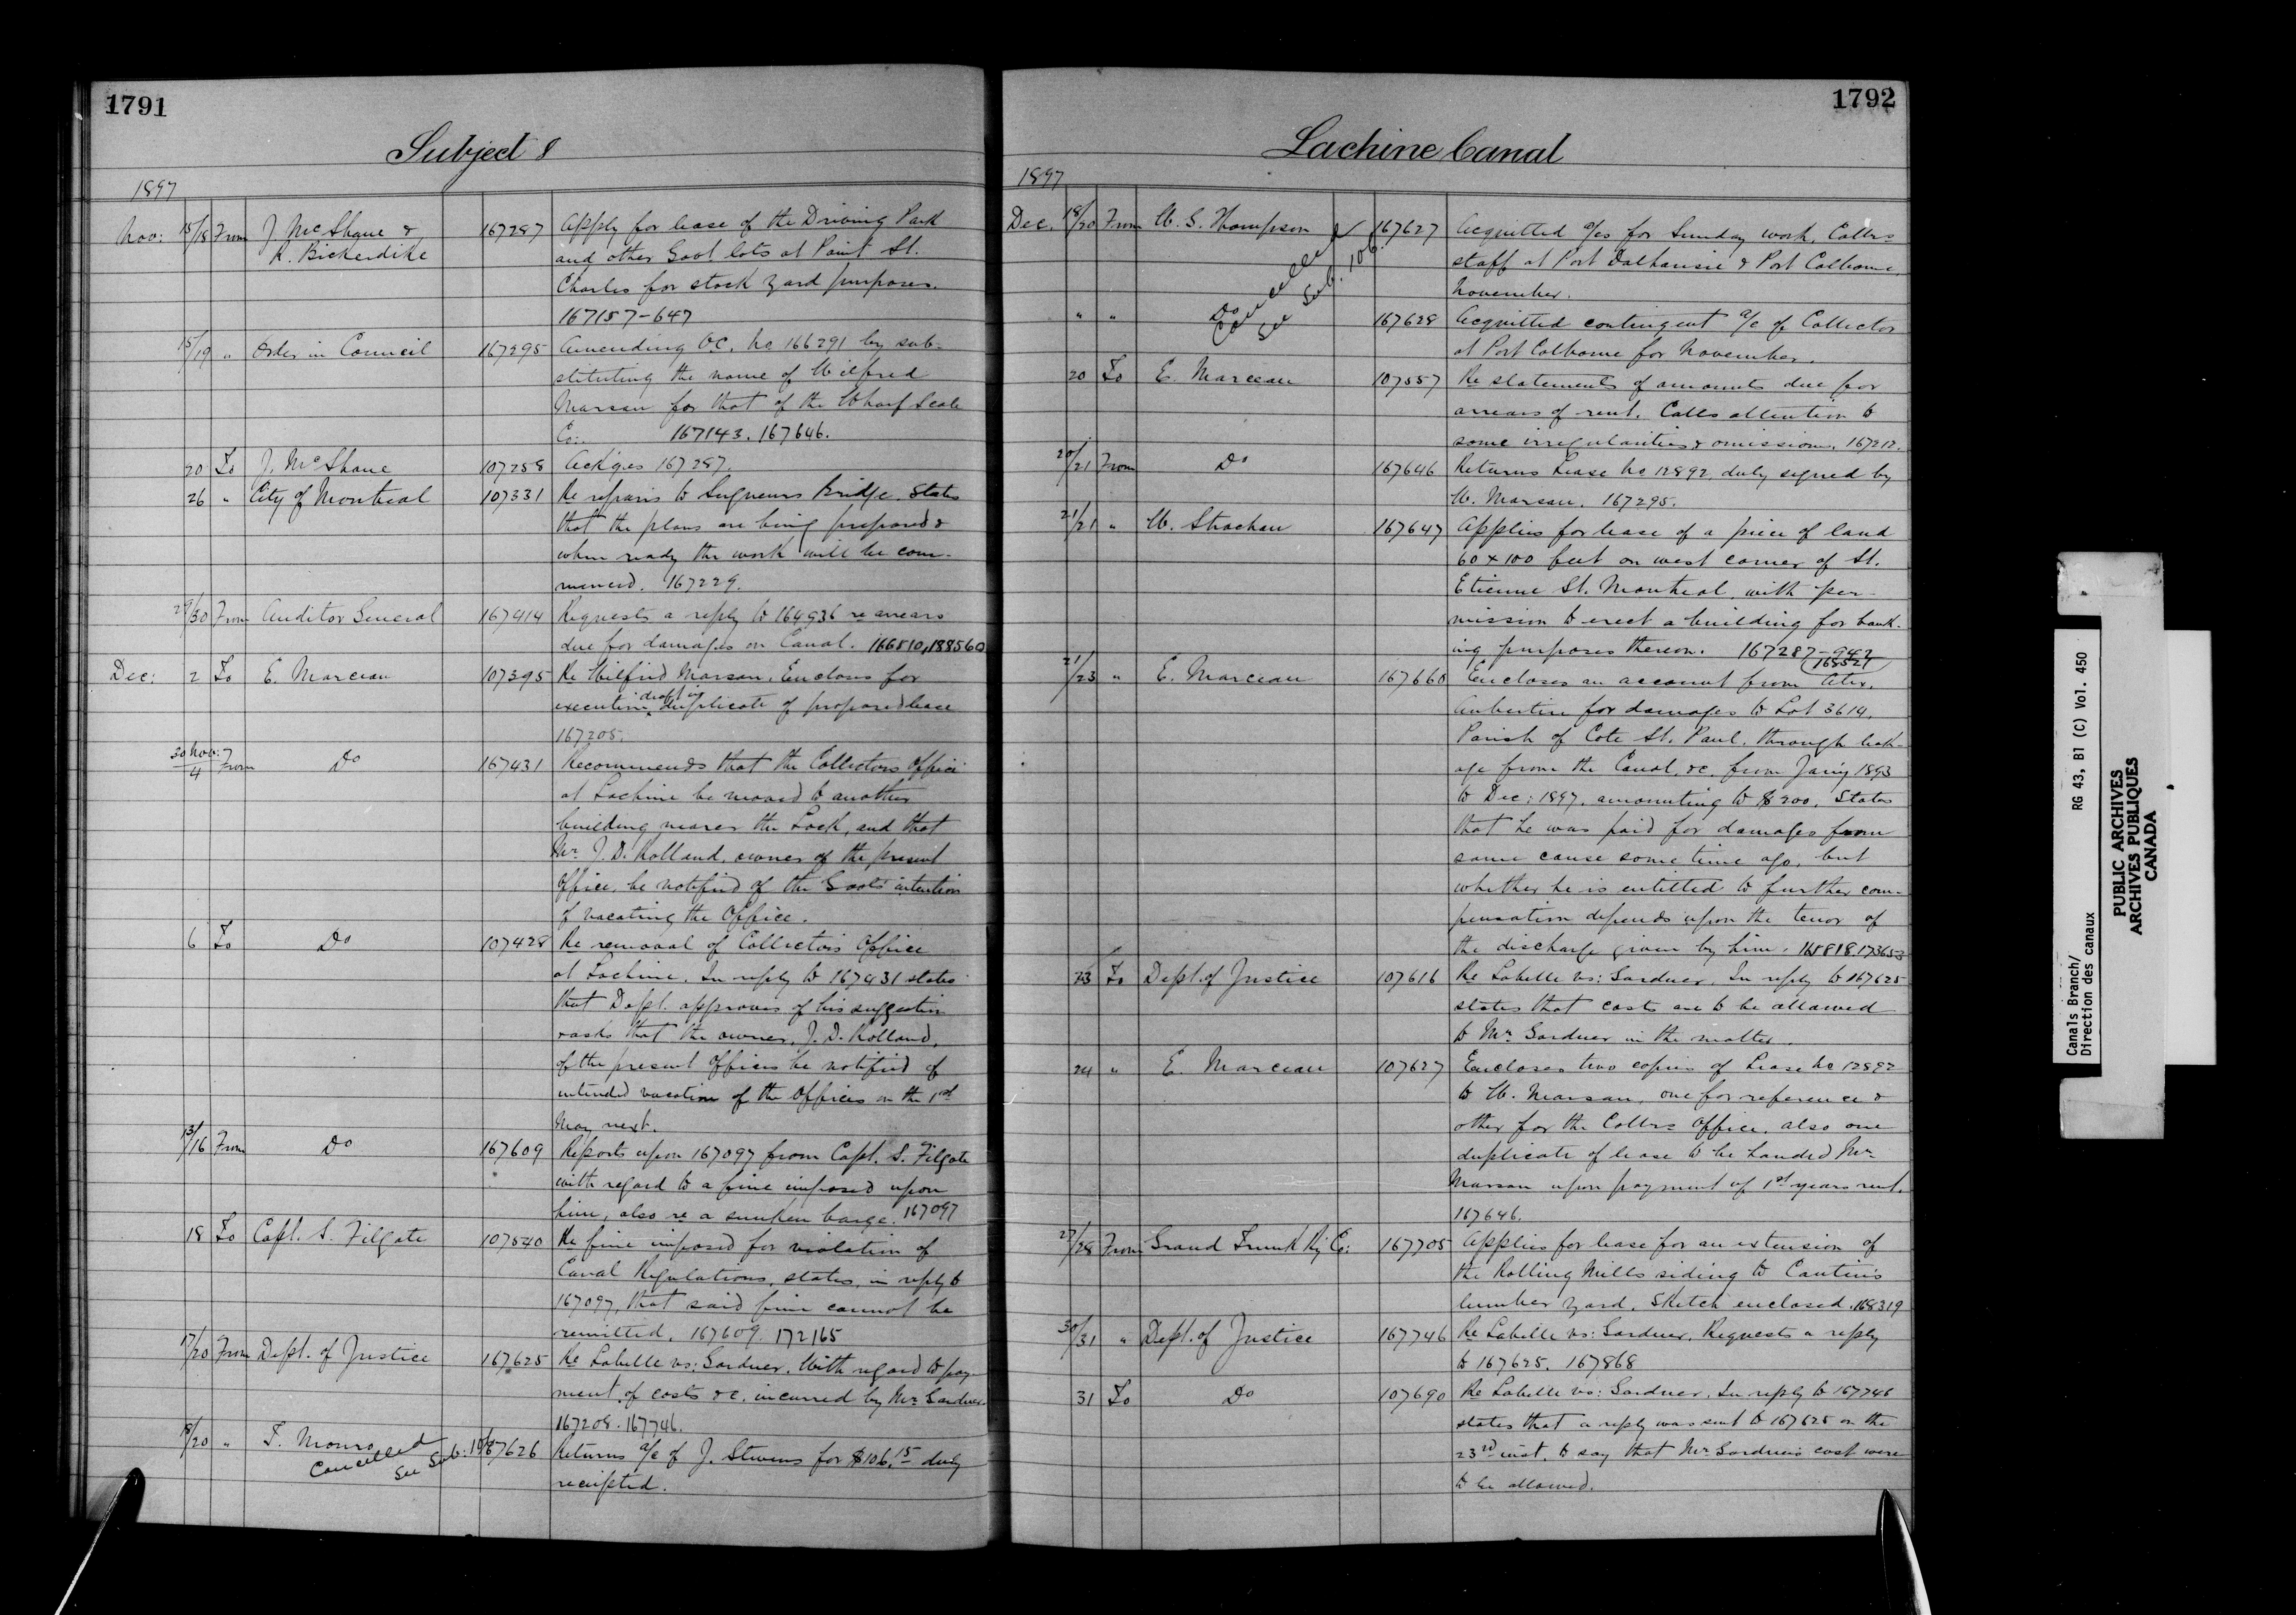 1791
Subject 8
1897
Nov: 15/18 From J. McShane & 167287 Apply for lease of the Driving Park
R. Bickerdike and other Govt lots at Point St.
Charles for stock yard purposes.
167157-647
15/19 " Order in Council 167295 Amending O.C. No 166291 by sub-
stituting the name of Wilfred
Marsan for that of the Wharf Scale
Co:. 167143. 167646.
20 To J. McShane 107258 Ack'ges 167287.
26 " City of Montreal 107331 Re repairs to Seigneurs Bridge. States
that the plans are being prepared &
when ready the work will be com-
menced. 167229.
29/30 From Auditor General 167414 Requests a reply to 164936 re arrears
due for damages on Canal. 166510, 188560
Dec: 2 To E. Marceau 107395 Re Wilfrid Marsan. Encloses for
execution draft in duplicate of proposed lease
167205.
30 Nov:/4 From Do 167431 Recommends that the Collectors Office
at Lachine be moved to another
building nearer the Lock, and that
Mr. J. D. Rolland, owner of the present
Office, be notified of the Govt's intention
of vacating the Office.
6 To Do 107428 Re removal of Collectors Office
at Lachine. In reply to 167431 states
that Dept. approves of his suggestion
& asks that the owner, J. D. Rolland,
of the present Offices be notified of
intended vacation of the Offices on the 1st
May next.
13/16 From Do 167609 Reports upon 167097 from Capt. S. Filgate
with regard to a fine imposed upon
him, also re a sunken barge. 167097
18 To Capt. S. Filgate 107540 Re fine imposed for violation of
Canal Regulations, states, in reply to
167097, that said fine cannot be
remitted. 167609. 172165
17/20 From Dept. of Justice 167625 Re Labelle vs: Gardner. With regard to pay-
ment of costs &c. incurred by Mr. Gardner
167208. 167746.
18/20 " T. Monro 167626 Returns a/c of J. Stevens for $106.15 duly
Cancelled See Sub: 10
receipted.
1792
Lachine Canal
1897
Dec. 18/20 From W. S. Thompson 167627 Acquitted a/cs for Sunday work, Collrs
staff at Port Dalhousie & Port Colborne
November.
Cancelled
See Sub. 106.
" " Do 167628 Acquitted contingent a/c of Collector
at Port Colborne for November.
20 To E. Marceau 107557 Re statements of amounts due for
arrears of rent. Calls attention to
some irregularities & omissions. 167212.
20/21 From Do 167646 Returns Lease No 12892, duly signed by
W. Marsan. 167295.
21/21 " W. Strachan 167647 Applies for lease of a piece of land
60 x 100 feet on west corner of St.
Etienne St. Montreal, with per-
mission to erect a building for bank-
ing purposes thereon. 167287-942
168521
21/23 " E. Marceau 167660 Encloses an account from Alex.
Aubertin for damages to Lot 3614,
Parish of Cote St. Paul, through leak-
age from the Canal, &c. from Jan'y 1893
to Dec: 1897, amounting to $200. States
that he was paid for damages from
same cause some time ago, but
whether he is entitled to further com-
pensation depends upon the tenor of
the discharge given by him. 165818. 173653
23 To Dept. of Justice 107616 Re Labelle vs: Gardner. In reply to 167625
states that costs are to be allowed
to Mr. Gardner in the matter.
24 " E. Marceau 107627 Encloses two copies of Lease No 12892
to W. Marsan, one for reference &
other for the Collrs Office, also one
duplicate of lease to be handed Mr.
Marsan upon payment of 1st years rent.
167646.
27/28 From Grand Trunk Ry Co: 167705 Applies for lease for an extension of
the Rolling Mills siding to Cantin's
lumber yard. Sketch enclosed. 168319
30/31 " Dept. of Justice 167746 Re Labelle vs: Gardner. Requests a reply
to 167625. 167868
31 To Do 107690 Re Labelle vs: Gardner. In reply to 167746
states that a reply was sent to 167625 on the
23rd inst. to say that Mr Gardner's cost were
to be allowed.
Canals Branch/ RG 43, B1 (C) Vol. 450
Direction des canaux
PUBLIC ARCHIVES
ARCHIVES PUBLIQUES
CANADA